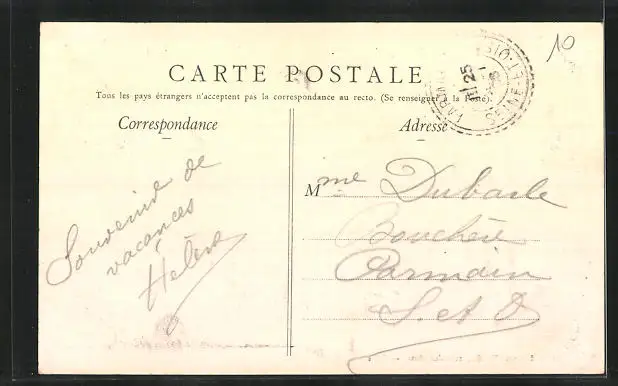 10
CARTE POSTALE
Tous les pays étrangers n'acceptent pas la correspondance au recto. (Se renseigner à la Poste).
Correspondance
Souvenir de
vacances
Hélène
Adresse
Mme Dubarle
Bouchère
Parmain
S. et O
25
SEINE-ET-OISE